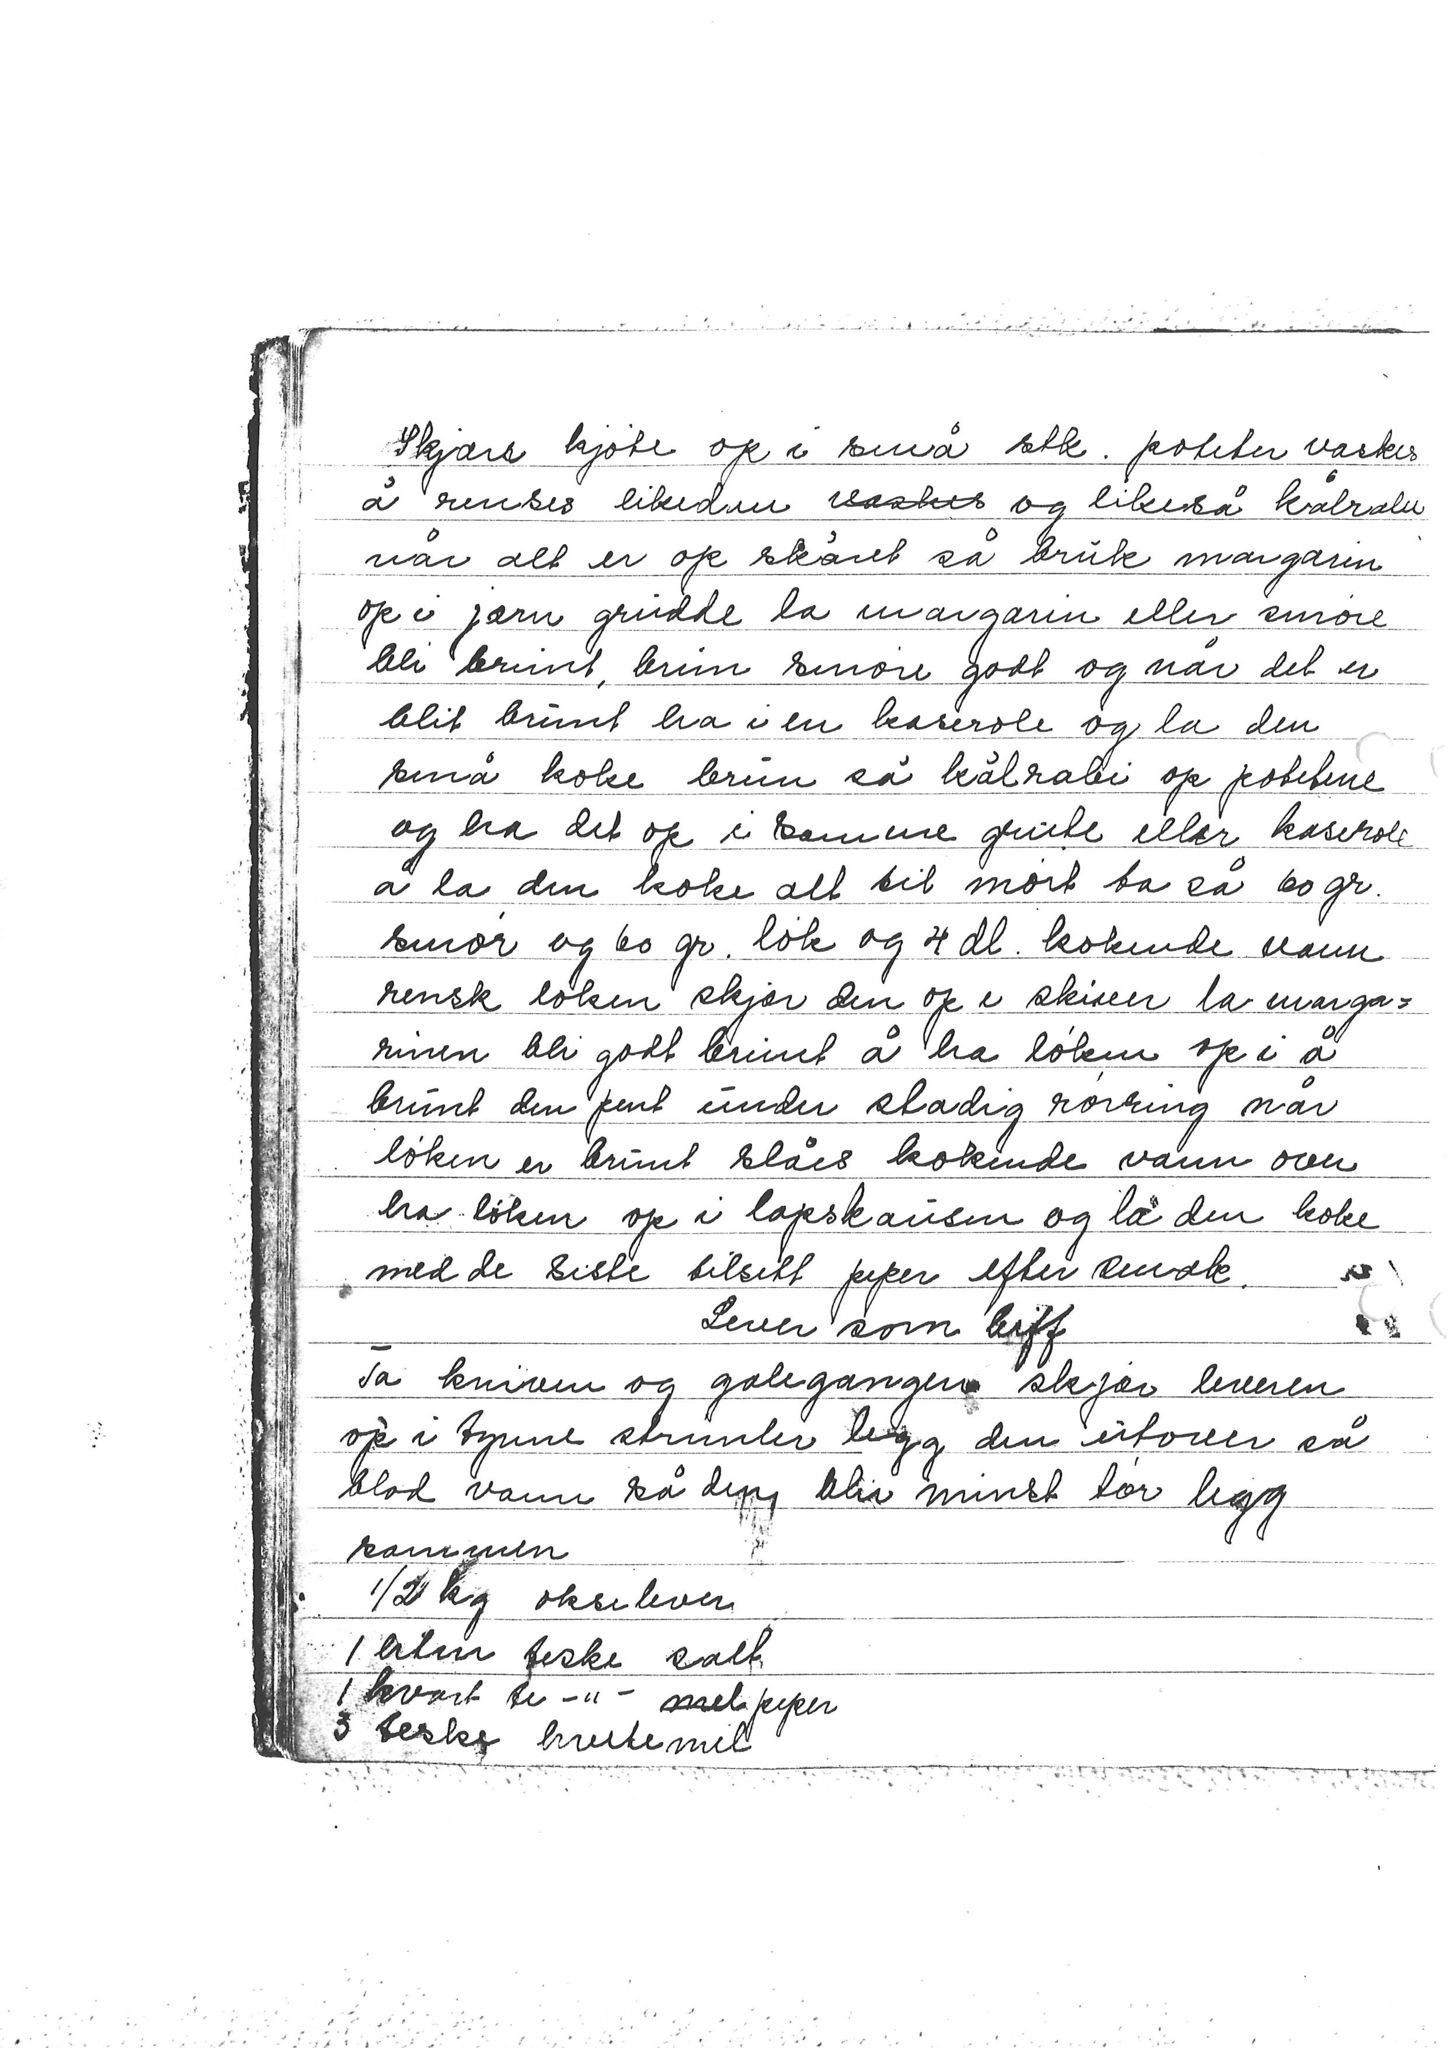 Skjære kjøte op i små stk. poteter vaskes
å renses likeden vaskes og likeså kålrabi
når alt er op skåret så bruk margarin
op i jærn grudde la margarin eller smøre
bli brunt, brun smøre godt og når det er
blit brunt ha i en kaserole og la den
små koke brun så kålrabi op potetene
og ha det op i samme grute eller kaserole
å la den koke alt til mørt ta så 60 gr.
smør og 60 gr. løk og 4 dl. kokende vann
rensk løken skjær den op i skiver la marga=
rinen bli godt brunt å ha løken op i å
brunt den pent under stadig rørring når
løken er brunt slåes kokende vann over
ha løken op i lapskausen og la den koke
med de siste tilsett peper efter smak.
Lever som biff
Ta kniven og galegangen skjær leveren
op i tynne strimler legg den utover så
blod vann så den blir minst tør legg
sammen
1/2 kg okselever
1 liten teske salt
1 kvart te -"- mel peper
3 teske hvetemel